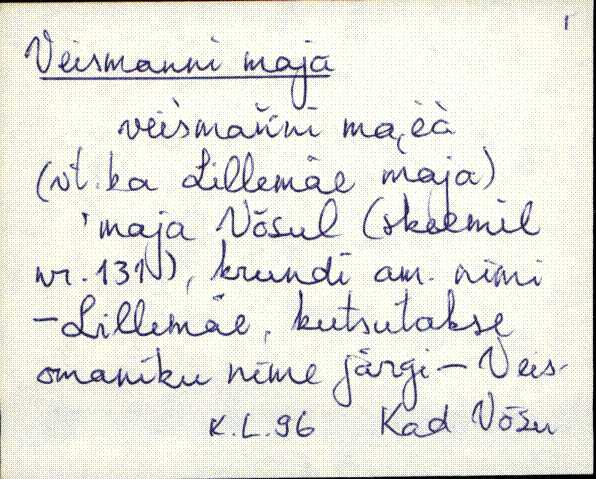 1
Veismanni maja
veìsman̄ni ma,èà
(vt. ka Lillemäe maja)
'maja Võsul (skeemil
nr. 131), krundi am. nimi
- Lillemäe, kutsutakse
omaniku nime järgi - Veis-
K.L.96 Kad Võsu